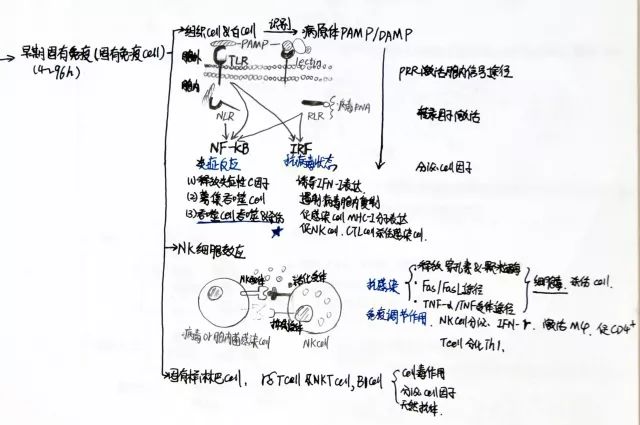 组织cell & 白cell 识别 病原体PAMP/DAMP
早期固有免疫(固有免疫cell)
(4~96h)
PAMP
胞外
TLR
lectin
PRR激活胞内信号途径
胞内
NLR
RLR
病毒RNA
转录因子激活
NF-KB
IRF
炎症反应
抗病毒状态
分泌cell因子
(1)释放炎症性C因子
诱导IFN-I表达
(2)募集吞噬cell
遏制病毒胞内复制
(3)吞噬cell吞噬&杀伤
促感染cell MHC-I分子表达
促NKcell、CTLcell杀伤感染cell.
NK细胞效应
NK受体
活化受体
抑制受体
病毒or胞内菌感染cell
NKcell
抗感染
·释放穿孔素&颗粒酶
·Fas/FasL途径
·TNF-α/TNF受体途径
杀伤cell.
免疫调节作用. NKcell分泌 IFN-γ. 激活Mφ, 促CD4⁺
Tcell分化Th1.
固有样淋巴cell, γδTcell&NKTcell, B1cell
cell毒作用
分泌cell因子
天然抗体